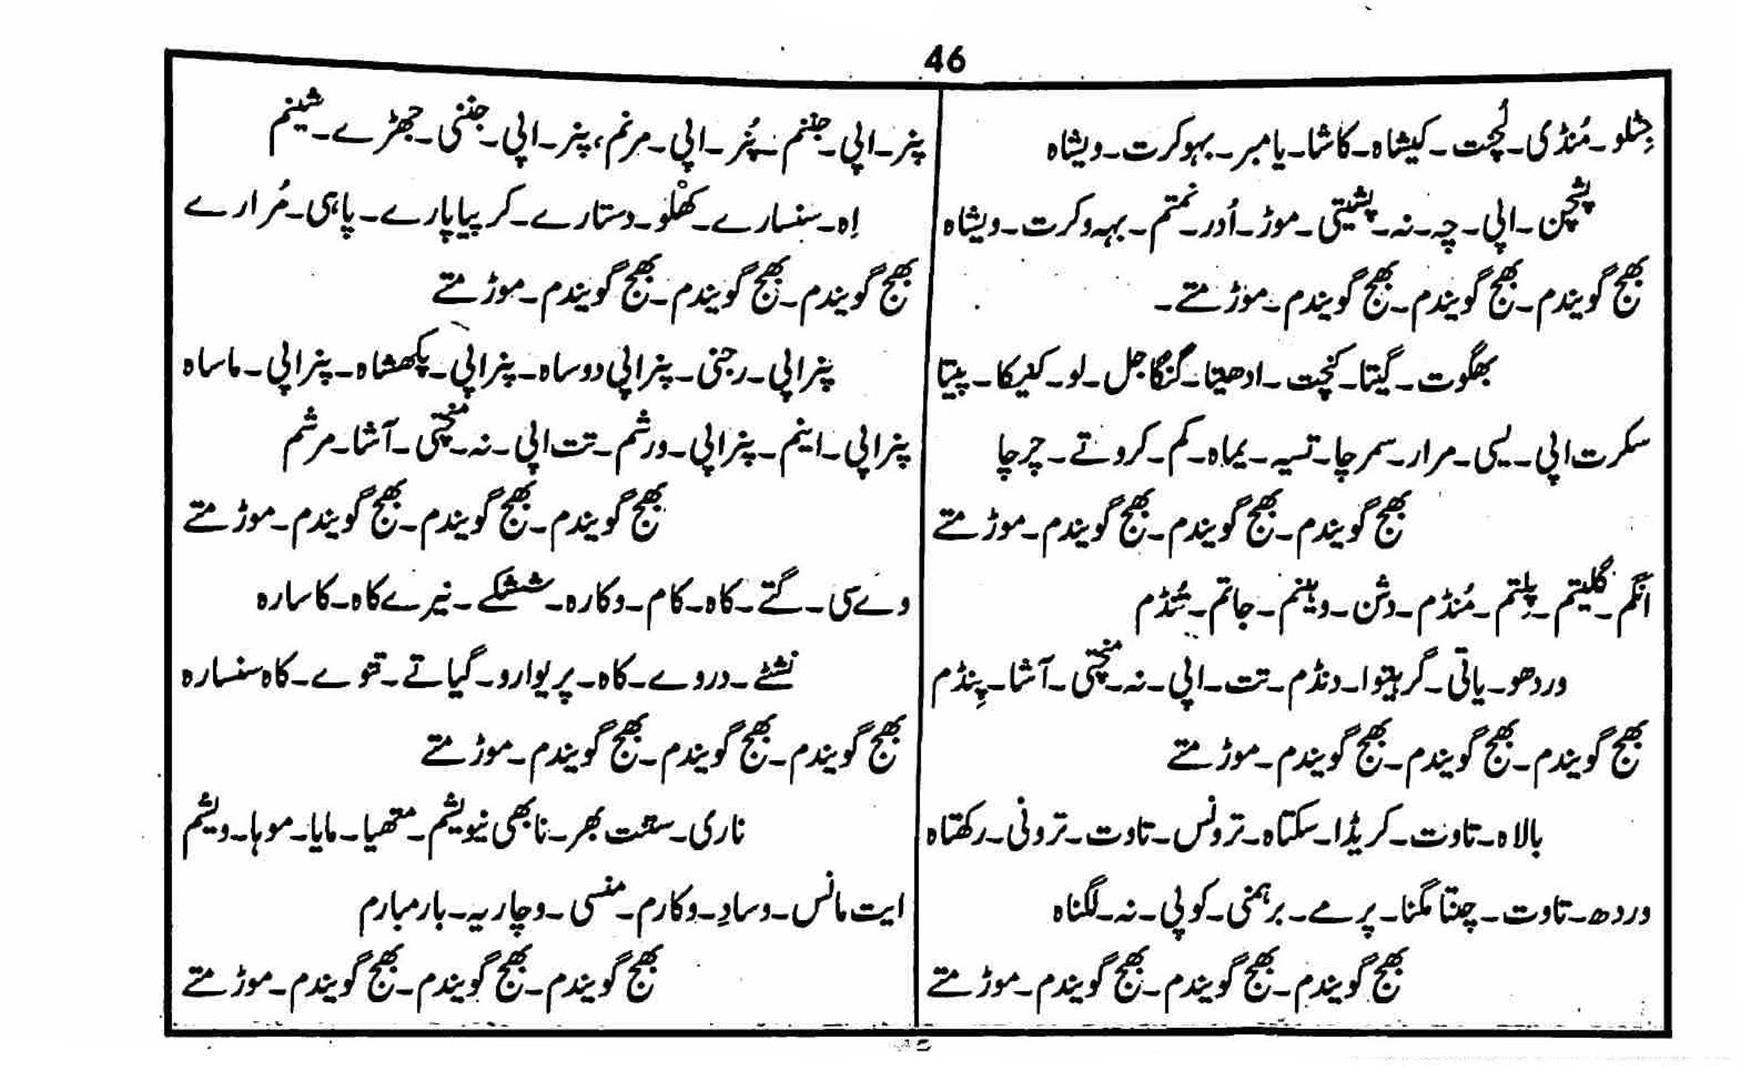 46
جٹلو۔مُنڈی۔لُچت۔کیشاہ۔کاشا۔یامبر۔بہوکرت۔ویشاہ
پشچن۔اپی۔چہ۔نہ۔پشیتی۔موڑ۔اُدر۔نمتم۔بہہ وکرت۔ویشاہ
بھج گویندم۔بھج گویندم۔بھج گویندم۔موڑمتے۔
بھگوت۔گیتا۔کنچت۔ادھیتا۔گنگاجل۔لو۔کنیکا۔پیتا
سکرت اپی۔یسی۔مرار۔سمرچا۔تسیہ۔یماہ۔کم۔کروتے۔چرچا
بھج گویندم۔بھج گویندم۔بھج گویندم۔موڑمتے
انگم۔گلیتم۔پلتم۔مُنڈم۔دشن۔وہینم۔جاتم۔تُنڈم
وردھو۔یاتی۔گرہیتوا۔دنڈم۔تت۔اپی۔نہ۔منچتی۔آشا۔پِنڈم
بھج گویندم۔بھج گویندم۔بھج گویندم۔موڑمتے
بالاہ۔تاوت۔کریڈا۔سکتاہ۔ترونس۔تاوت۔ترونی۔رکھتاہ
وردھ۔تاوت۔چنتا مگنا۔پرمے۔برہمنی۔کوپی۔نہ۔لگناہ
بھج گویندم۔بھج گویندم۔بھج گویندم۔موڑمتے
پنر۔اپی۔جننم۔پُنر۔اپی۔مرنم،پنر۔اپی۔جننی۔جھڑے۔شینم
اِہ۔سنسارے۔کھلو۔دستارے۔کرپیاپارے۔پاہی۔مُرارے
بھج گویندم۔بھج گویندم۔بھج گویندم۔موڑمتے
پنراپی۔رجنی۔پنراپی دوساہ۔پنراپی۔پکھشاہ۔پنراپی۔ماساہ
پنراپی۔اینم۔پنراپی۔ورشم۔تت اپی۔نہ۔منچتی۔آشا۔مرشم
بھج گویندم۔بھج گویندم۔بھج گویندم۔موڑمتے
وےسی۔گتے۔کاہ۔کام۔وکارہ۔ششکے۔نیرےکاہ۔کاسارہ
نشٹے۔دروے۔کاہ۔پریوارو۔گیاتے۔تتوے۔کاہ سنسارہ
بھج گویندم۔بھج گویندم۔بھج گویندم۔موڑمتے
ناری۔ستنت بھر۔نابھی نیویشم۔متھیا۔مایا۔موہا۔ویشم
ایت مانس۔وسادِ۔وکارم۔منسی۔وچاریہ۔بارمبارم
بھج گویندم۔بھج گویندم۔بھج گویندم۔موڑمتے